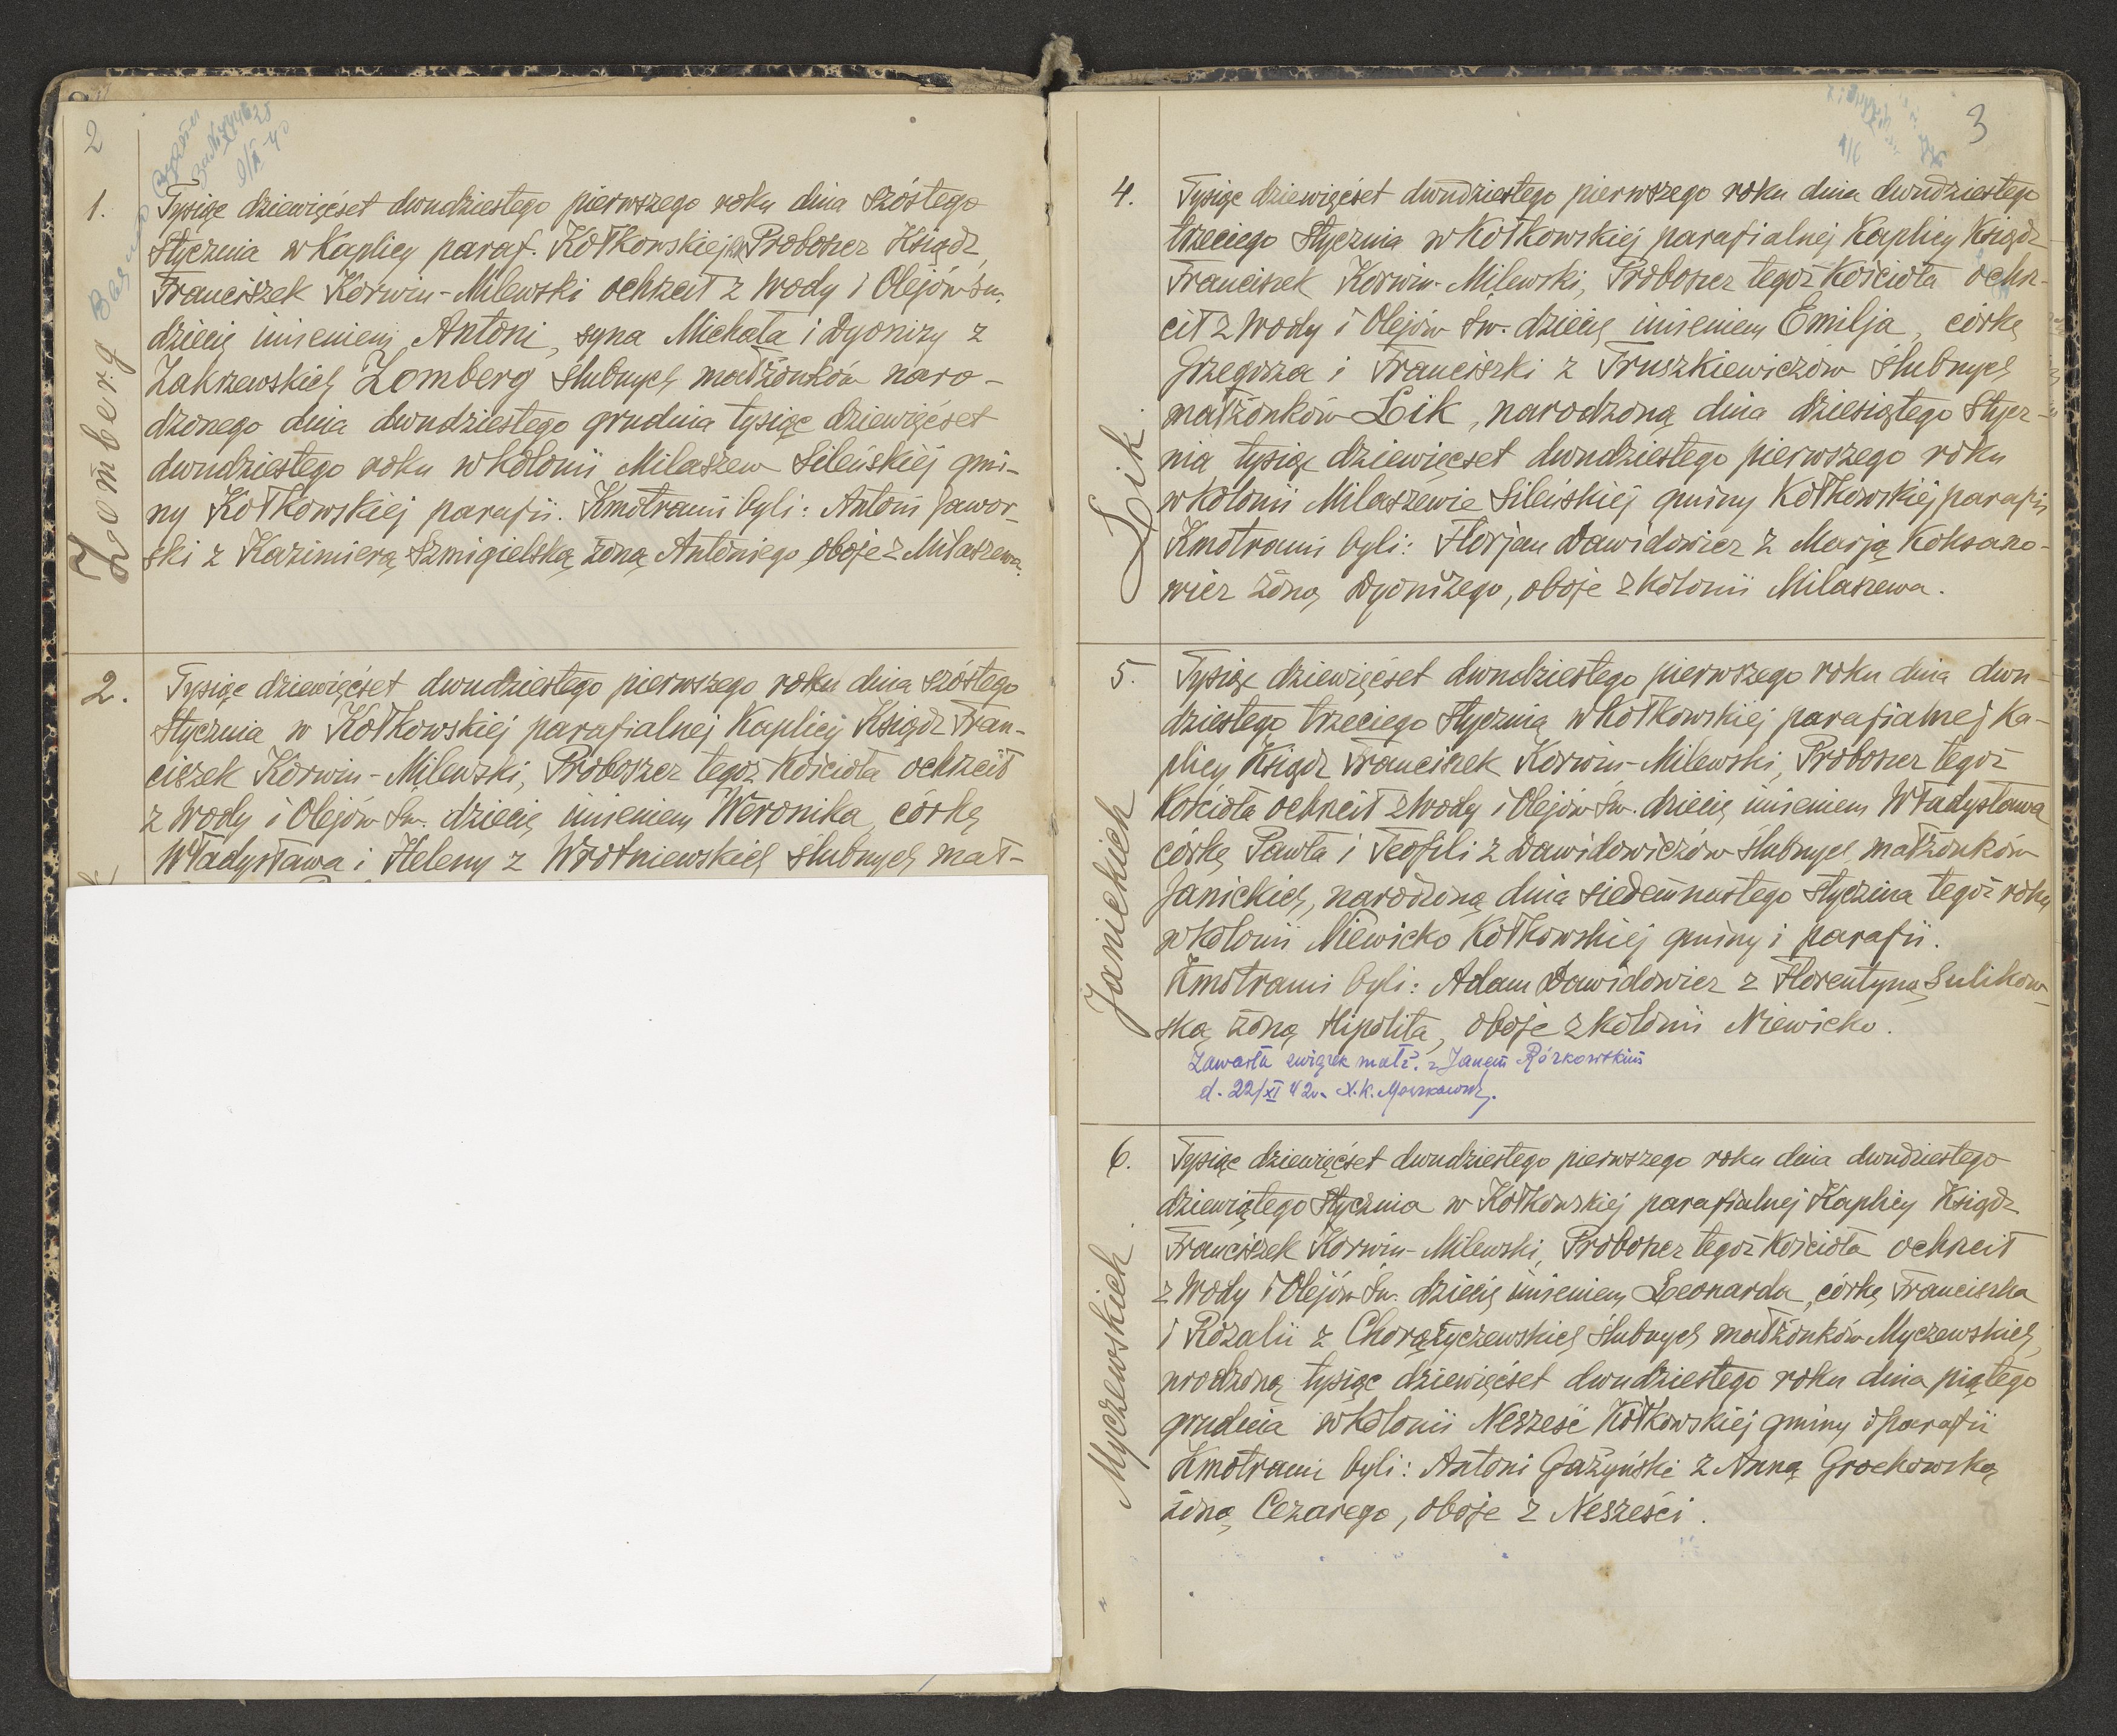 2
1.
Tysiąc dziewięćset dwudziestego pierwszego roku dnia szóstego
Stycznia w Kaplicy paraf. Kołkowskiej Proboszcz Ksiądz
Franciszek Korwin-Milewski ochrzcił z Wody i Olejów Św.
dziecię imieniem Antoni, syna Michała i Dyonizy z
Zakrzewskich Zomberg ślubnych małżonków naro-
dzonego dnia dwudziestego grudnia tysiąc dziewięćset
dwudziestego roku w kolonii Milaszew Sileńskiej gmi-
ny Kołkowskiej parafii. Kmotrami byli: Antoni Jawor-
ski z Kazimierą Szmigielską żoną Antoniego oboje z Milaszewa.
Zomberg
2.
Tysiąc dziewięćset dwudziestego pierwszego roku dnia szóstego
Stycznia w Kołkowskiej parafialnej Kaplicy Ksiądz Fran-
ciszek Korwin-Milewski, Proboszcz tegoż Kościoła ochrzcił
z Wody i Olejów Św. dziecię imieniem Weronika, córkę
Władysława i Heleny z Wrotniewskich ślubnych mał-
3
4.
Tysiąc dziewięćset dwudziestego pierwszego roku dnia dwudziestego
trzeciego Stycznia w Kołkowskiej parafialnej Kaplicy Ksiądz
Franciszek Korwin-Milewski, Proboszcz tegoż Kościoła ochrz-
cił z Wody i Olejów Św. dziecię imieniem Emilja, córkę
Grzegorza i Franciszki z Truszkiewiczów ślubnych
małżonków Lik, narodzoną dnia dziesiątego Stycz-
nia tysiąc dziewięćset dwudziestego pierwszego roku
w kolonii Milaszewie Sileńskiej gminy Kołkowskiej parafii
Kmotrami byli: Florjan Dawidowicz z Marją Koksano-
wicz żoną Dyonizego, oboje z kolonii Milaszewa.
Lik.
5.
Tysiąc dziewięćset dwudziestego pierwszego roku dnia dwu-
dziestego trzeciego Stycznia w Kołkowskiej parafialnej Ka-
plicy Ksiądz Franciszek Korwin-Milewski, Proboszcz tegoż
Kościoła ochrzcił z Wody i Olejów Św. dziecię imieniem Władysława
córkę Pawła i Teofili z Dawidowiczów ślubnych małżonków
Janickich, narodzoną dnia siedemnastego stycznia tegoż roku
w kolonii Niewicko Kołkowskiej gminy i parafii.
Kmotrami byli: Adam Dawidowicz z Florentyną Sulikow-
ską żoną Hipolita, oboje z kolonii Niewicko.
Zawarła związek małż. z Janem Rózkowskim
d. 22/XI 42r. X. K.
Janickich
6.
Tysiąc dziewięćset dwudziestego pierwszego roku dnia dwudziestego
dziewiątego Stycznia w Kołkowskiej parafialnej Kaplicy Ksiądz
Franciszek Korwin-Milewski, Proboszcz tegoż Kościoła ochrzcił
z Wody i Olejów Św. dziecię imieniem Leonarda, córkę Franciszka
i Rozalii z Chorążyczewskich ślubnych małżonków Myczewskich,
urodzoną tysiąc dziewięćset dwudziestego roku dnia piątego
grudnia w kolonii Nesześć Kołkowskiej gminy i parafii
Kmotrami byli: Antoni Gażyński z Anną Grochowską
żoną Cezarego, oboje z Nesześci.
Myczewskich